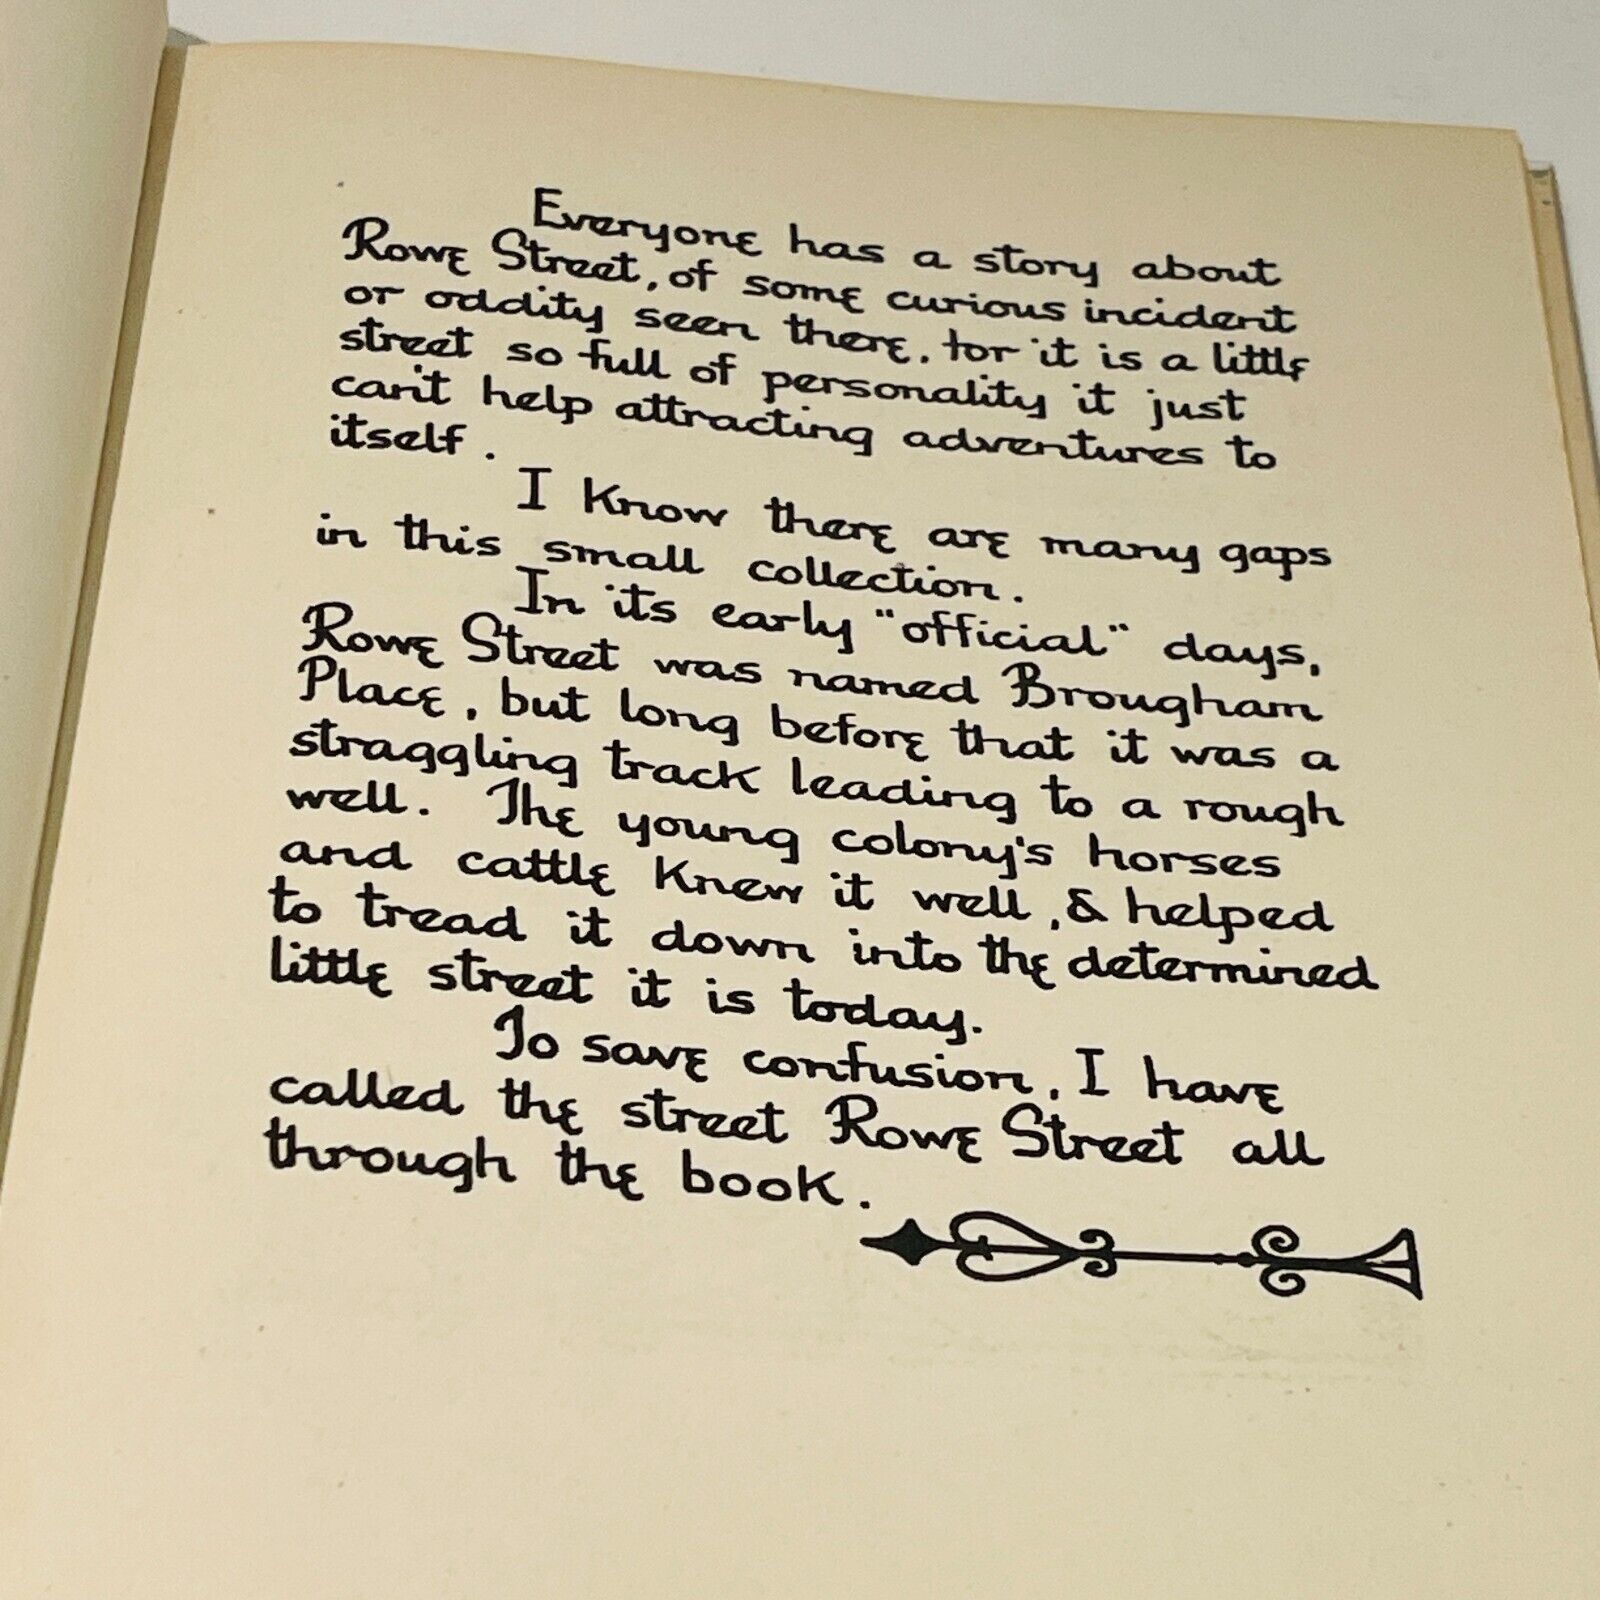 Everyone has a story about
Rowe Street, of some curious incident
or oddity seen there, for it is a little
street so full of personality it just
can't help attracting adventures to
itself.
I know there are many gaps
in this small collection.
In its early "official" days,
Rowe Street was named Brougham
Place, but long before that it was a
straggling track leading to a rough
well. The young colony's horses
and cattle knew it well, & helped
to tread it down into the determined
little street it is today.
To save confusion, I have
called the street Rowe Street all
through the book.